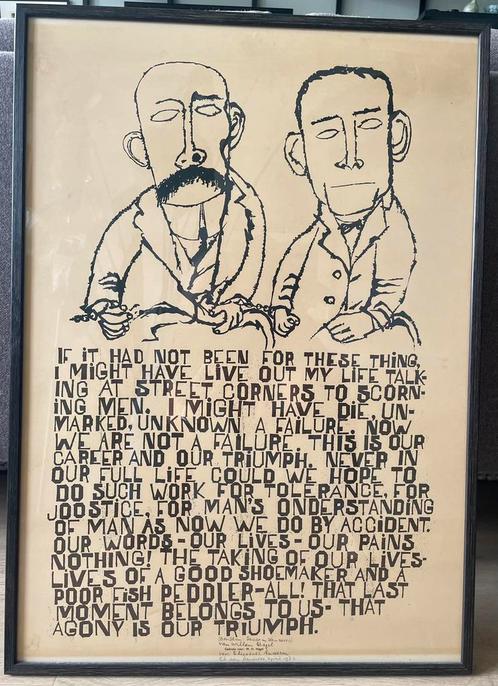 IF IT HAD NOT BEEN FOR THESE THING,
I MIGHT HAVE LIVE OUT MY LIFE TALK-
ING AT STREET CORNERS TO SCORN-
ING MEN. I MIGHT HAVE DIE, UN-
MARKED, UNKNOWN A FAILURE. NOW
WE ARE NOT A FAILURE THIS IS OUR
CAREER AND OUR TRIUMPH. NEVER IN
OUR FULL LIFE COULD WE HOPE TO
DO SUCH WORK FOR TOLERANCE, FOR
JOOSTICE, FOR MAN'S ONDERSTANDING
OF MAN AS NOW WE DO BY ACCIDENT.
OUR WORDS - OUR LIVES - OUR PAINS
NOTHING! THE TAKING OF OUR LIVES-
LIVES OF A GOOD SHOEMAKER AND A
POOR FISH PEDDLER - ALL! THAT LAST
MOMENT BELONGS TO US - THAT
AGONY IS OUR TRIUMPH.